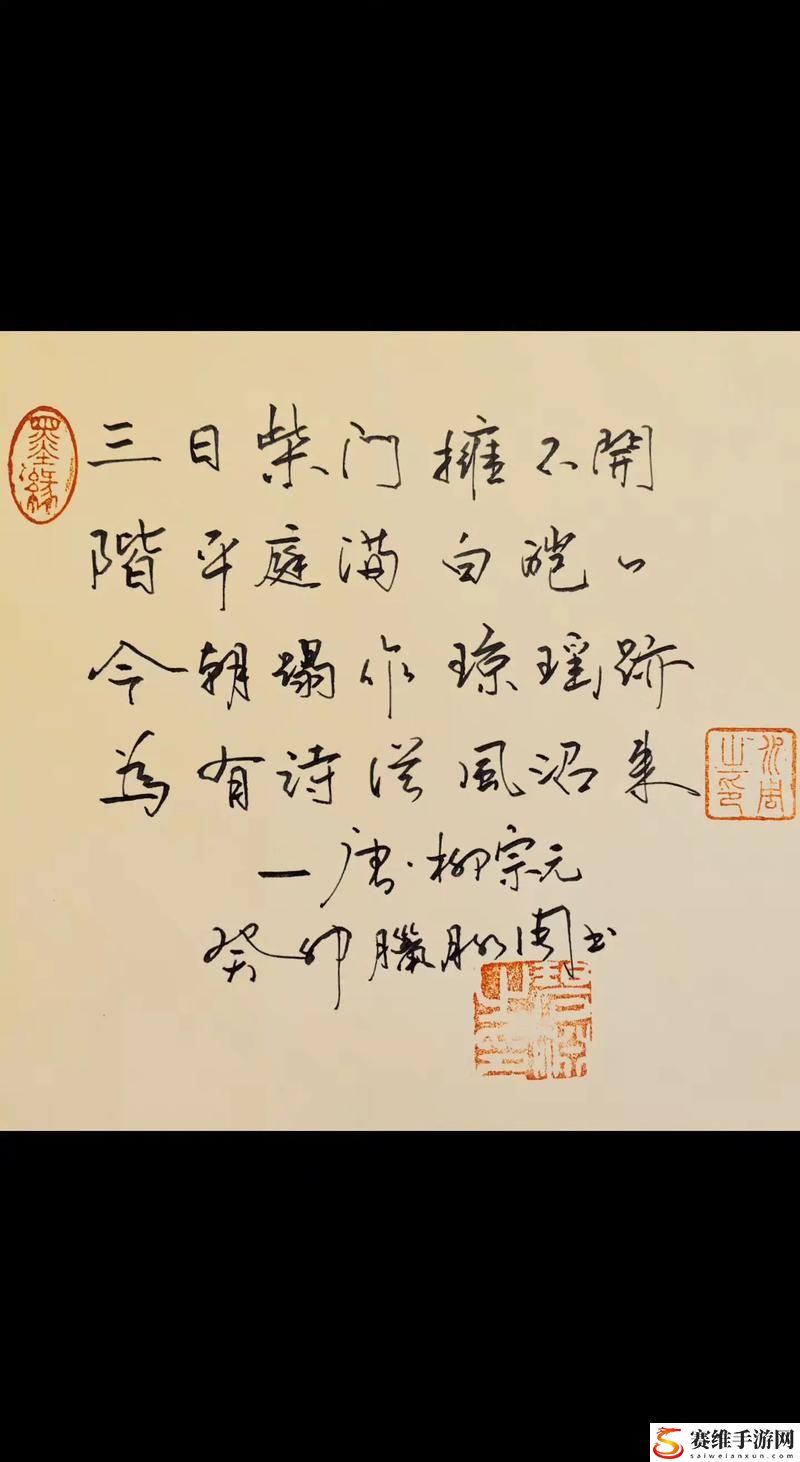 墨缘
三日柴门擁不開
階平庭满白皑〃
今朝蹋作瓊瑶跡
為有詩從風沼来
—唐·柳宗元
癸卯臘月 周書
赛维手游网
saiweianxun.com